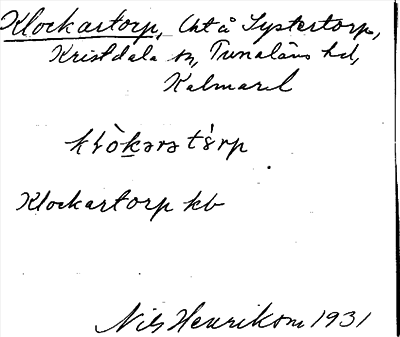 Klockartorp, Cht å Systertorp,
Kristdala sn, Tunaläns hd,
Kalmar l
klòkarə tórp
Klockartorp kb
Nils Henrikson 1931